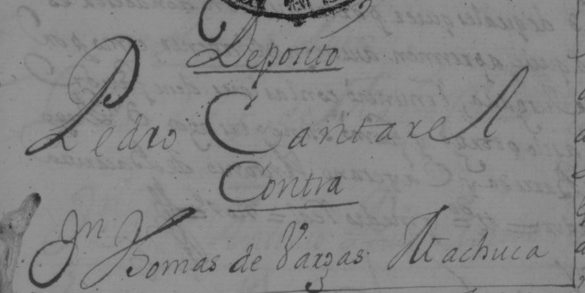 Deposito
Pedro Cantarel
Contra
Jn Thomas de Vargas Machuca